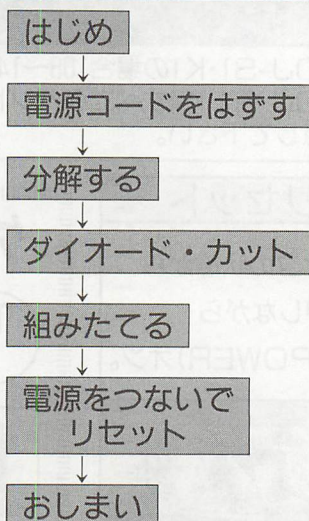 はじめ
電源コードをはずす
分解する
ダイオード・カット
組みたてる
電源をつないで
リセット
おしまい